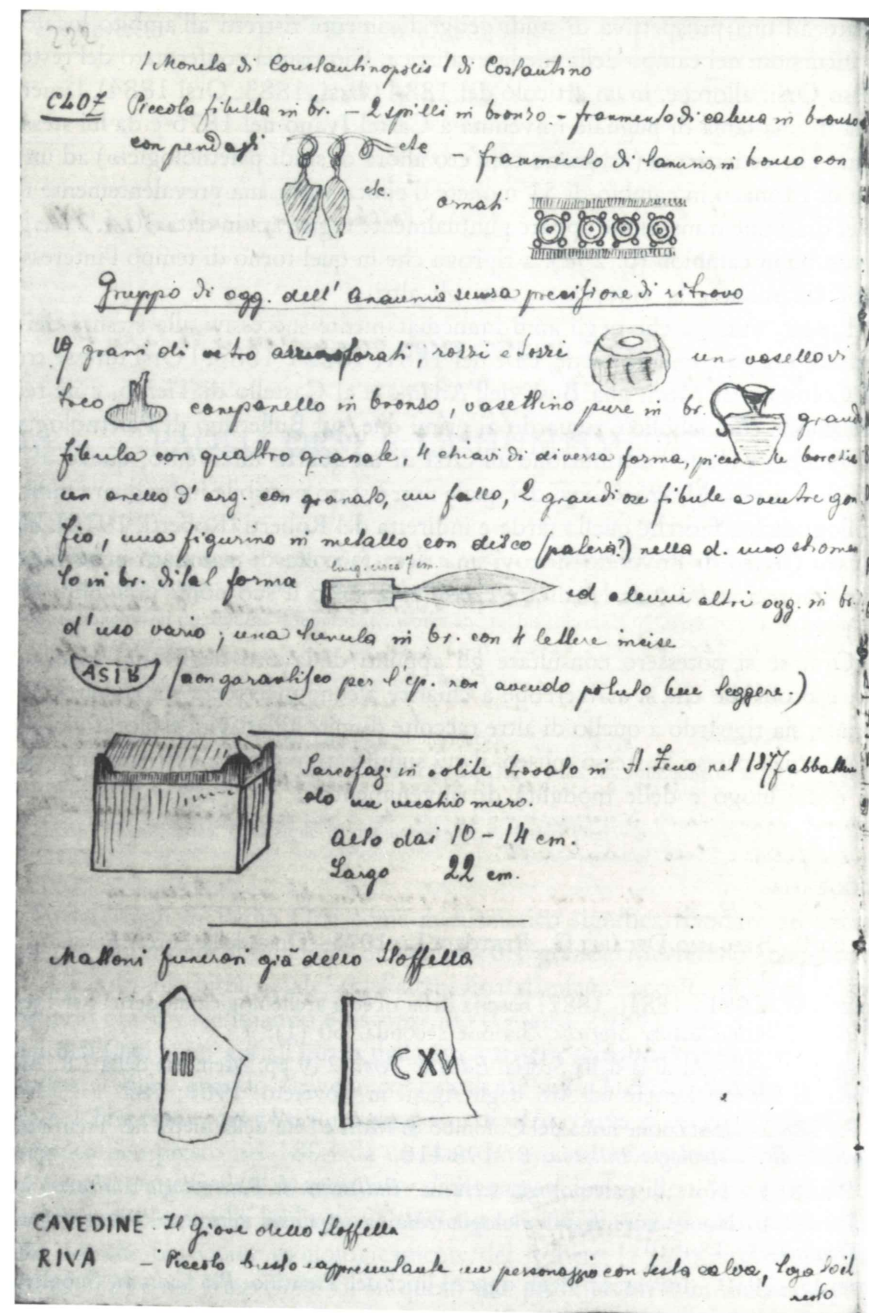 222
1 Moneta di Constantinopolis 1 di Costantino
CLOZ Piccola fibula in br. – 2 spilli in bronzo – frammento di catena in bronzo
con pendagli etc – frammento di lamina in bronzo con
etc. ornati
Gruppo di ogg. dell' Anaunia senza precisione di ritrovo
19 grani di vetro forati, rossi e un vasello vi
treo campanello in bronzo, vasettino pure in br. grand
fibula con quattro granate, 4 chiavi di diversa forma,
un anello d'arg. con granato, un fallo, 2 grandiose fibule a ventre gon
fio, una figurina in metallo con disco (patera?) nella d. uno strome
to in br. di tal forma lung. circa 7 cm. ed alcuni altri ogg. in br.
d'uso vario, una lunula in br. con 4 lettere incise
ASIB (non garantisco per l'ep. non avendo potuto bene leggere.)
Sarcofago in oolite trovato in A. Zeno nel 1877 abbatten
do un vecchio muro.
Alto dai 10 – 14 cm.
Largo 22 cm.
Mattoni funerari già dello Stoffella
IIII CXV
CAVEDINE Il Giove dello Stoffella
RIVA – Piccolo busto rappresentante un personaggio con testa calva, toga